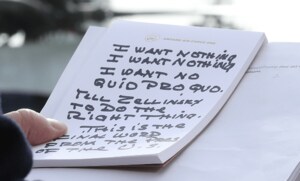 I WANT NOTHING
I WANT NOTHING
I WANT NO
QUID PRO QUO.
TELL ZELLINSKY
TO DO THE
RIGHT THING.
THIS IS THE
FINAL WORD
FROM THE
OF THE U